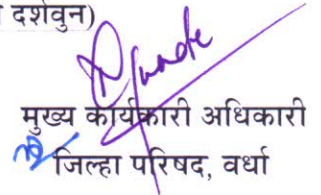 दर्शवुन)
मुख्य कार्यकारी अधिकारी
जिल्हा परिषद, वर्धा